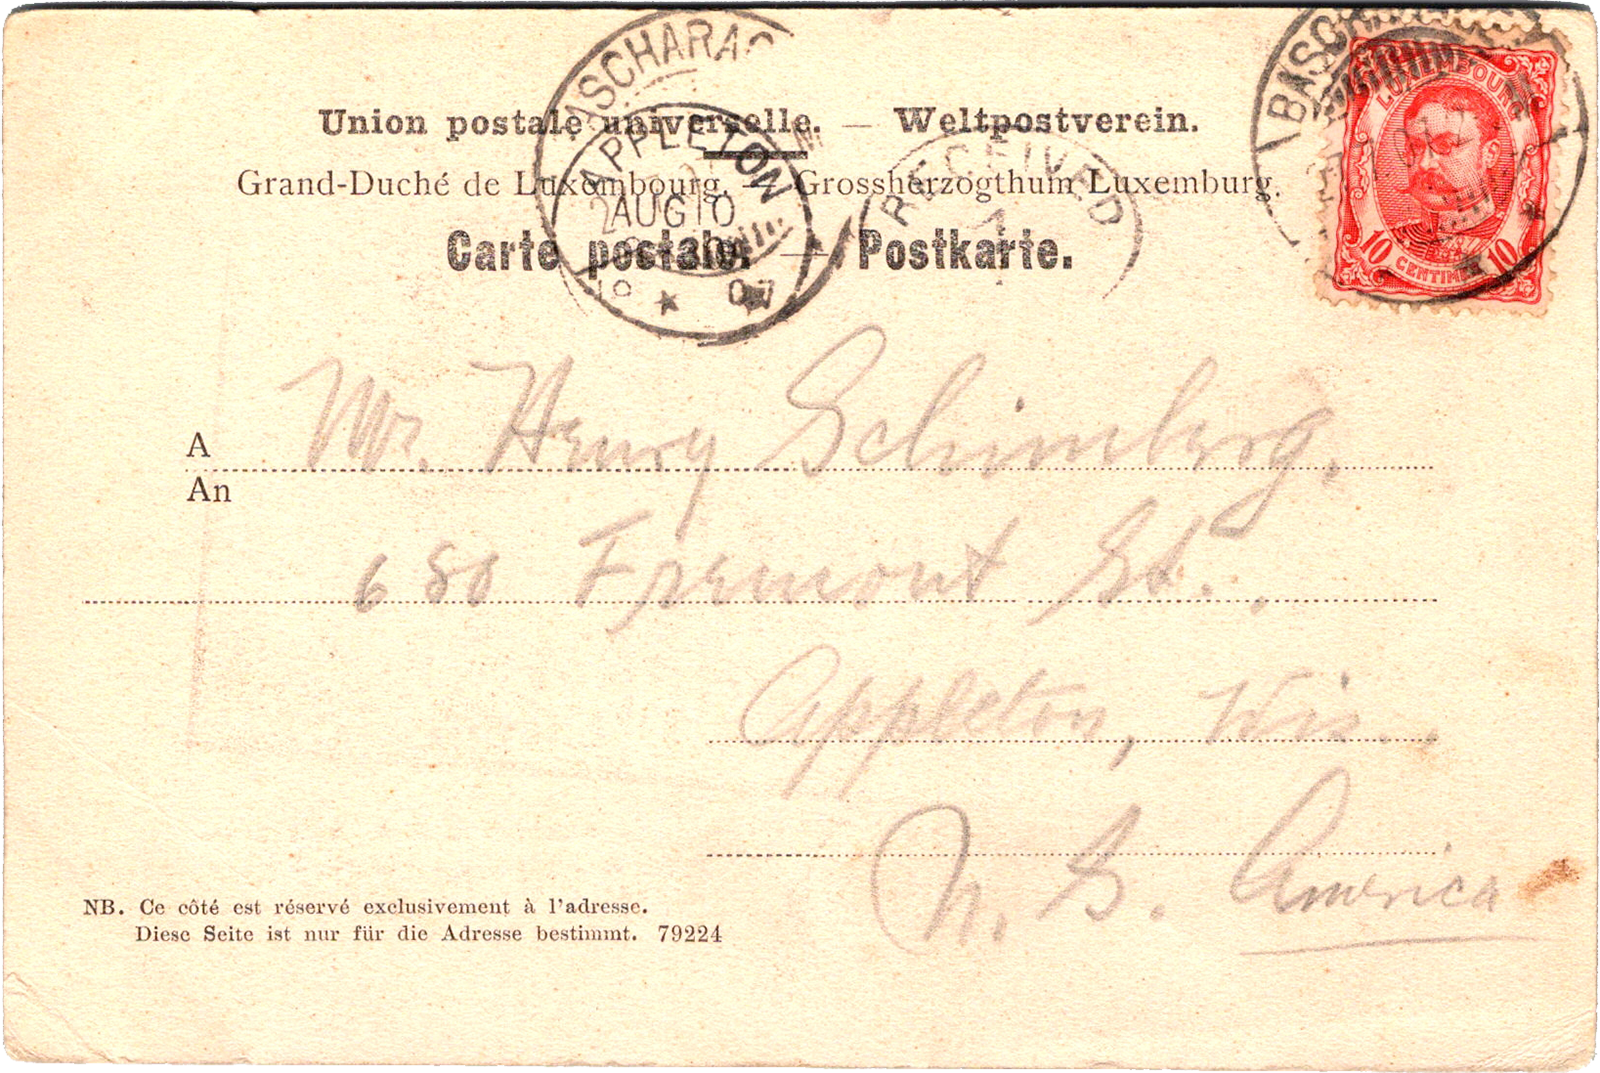 BASCHARAG
Union postale universelle. — Weltpostverein.
Grand-Duché de Luxembourg. — Grossherzogthum Luxemburg.
Carte postale. — Postkarte.
APPLETON
AUG 10
07
RECEIVED
LUXEMBOURG
10 CENTIMES 10
A
An
Mr. Henry Schimberg,
680 Fremont St.,
Appleton, Wis.
U. S. America
NB. Ce côté est réservé exclusivement à l'adresse.
Diese Seite ist nur für die Adresse bestimmt. 79224